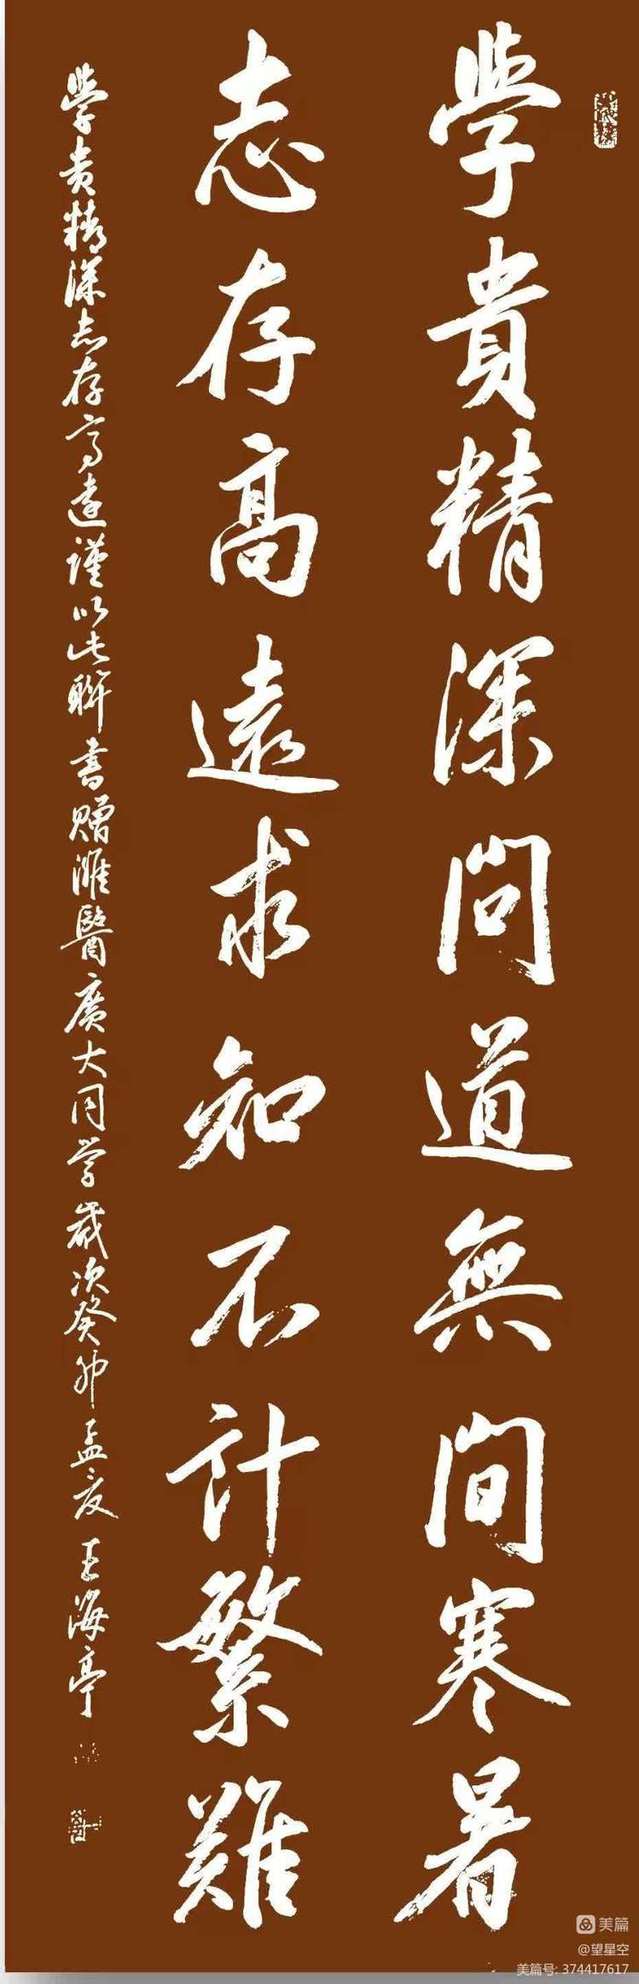 學貴精深問道無間寒暑
志存高遠求知不計繁難
學貴精深志存高遠謹以此聯書贈濰醫廣大同學歲次癸卯孟夏王海亭
美篇
@望星空
美篇号: 374417617